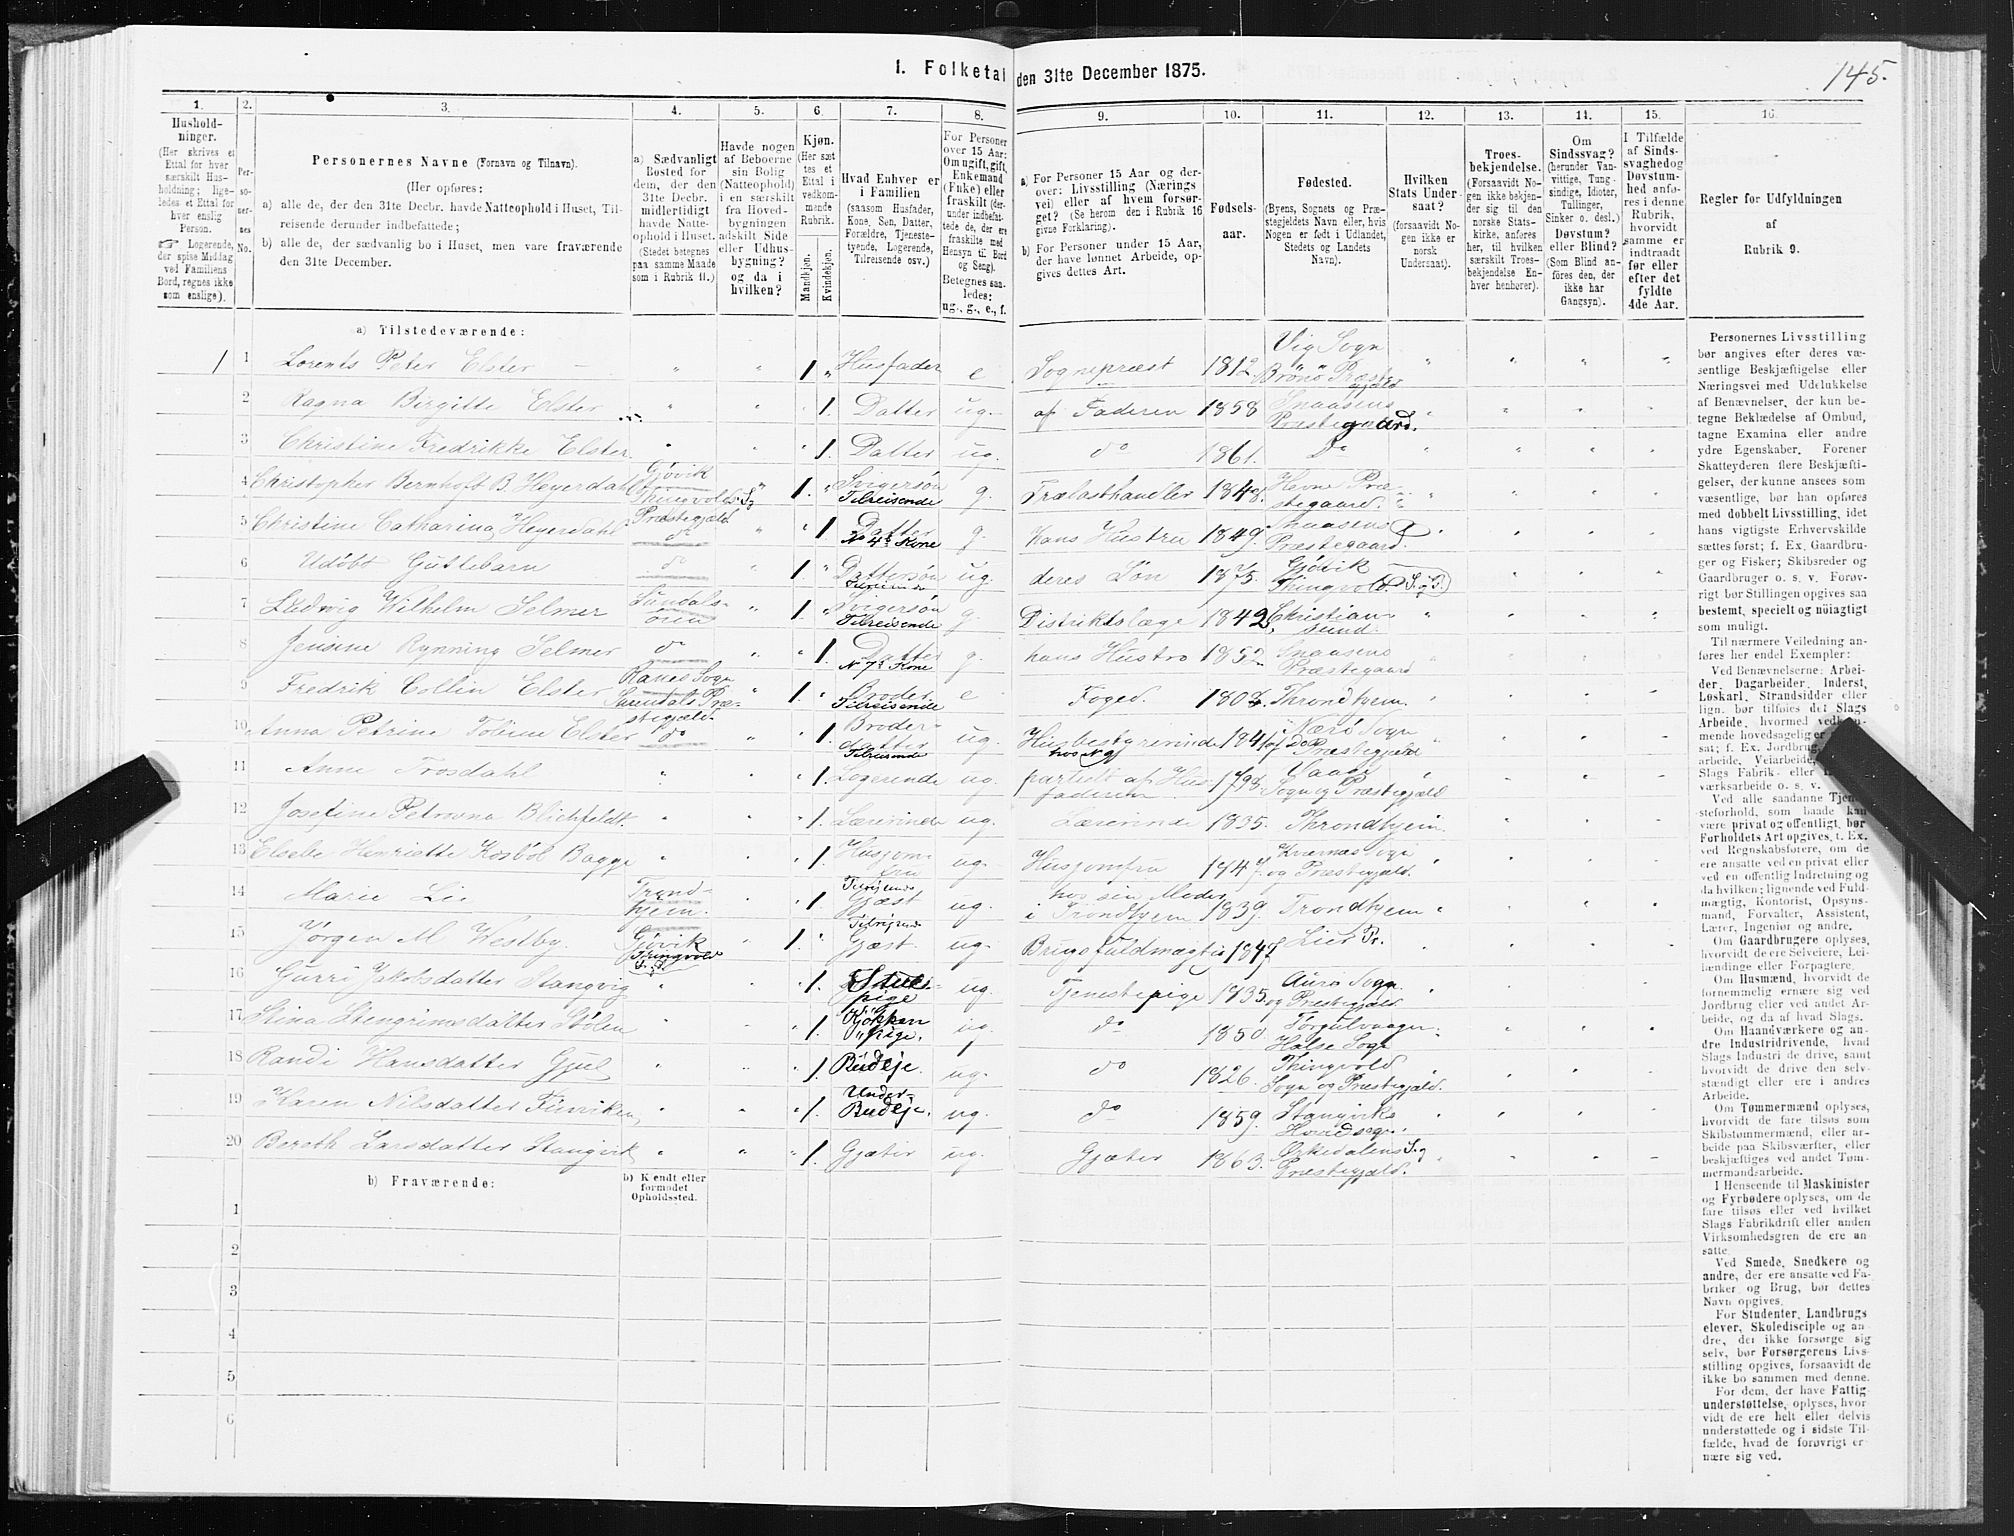 1. Folketal den 31te December 1875.
145.
1. 2. 3. 4. 5. 6. 7. 8. 9. 10. 11. 12. 13. 14. 15. 16.
Husholdninger.
(Her skrives et
Ettal for hver
særskilt Husholdning;
ligeledes et Ettal for
hver enslig
Person.
☞ Logerende,
der spise Middag
ved Familiens
Bord, regnes ikke
som enslige).
Personernes No.
Personernes Navne (Fornavn og Tilnavn).
(Her opføres:
a) alle de, der den 31te Decbr. havde Natteophold i Huset, Tilreisende derunder indbefattede;
b) alle de, der sædvanlig bo i Huset, men vare fraværende
den 31te December.
a) Sædvanligt
Bosted for
dem, der den
31te Decbr.
midlertidigt
havde Natteophold i Huset.
(Stedet betegnes
paa samme Maade
som i Rubrik 11.)
Havde nogen
af Beboerne
sin Bolig
(Natteophold)
i en særskilt
fra Hovedbygningen
adskilt Side
eller Udhusbygning?
og da i
hvilken?
Kjøn.
(Her sættes et
Ettal i
vedkommende
Rubrik.
Mandkjøn.
Kvindekjøn.
Hvad Enhver er
i Familien
(saasom Husfader,
Kone, Søn, Datter,
Forældre, Tjenestetyende, Logerende,
Tilreisende osv.)
For Personer
over 15 Aar:
Om ugift, gift,
Enkemand
(Enke) eller
fraskilt (derunder indbefattede de, der ere
fraskilte med
Hensyn til Bord
og Seng).
Betegnes saaledes:
ug., g., e., f.
a) For Personer 15 Aar og derover: Livsstilling (Næringsvei) eller af hvem forsørget? (Se herom den i Rubrik 16
givne Forklaring).
b) For Personer under 15 Aar,
der have lønnet Arbeide, opgives dettes Art.
Fødselsaar.
Fødested.
(Byens, Sognets og Præstegjeldets Navn eller, hvis
Nogen er født i Udlandet,
Stedets og Landets
Navn).
Hvilken
Stats Undersaat?
(forsaavidt Nogen ikke er
norsk
Undersaat).
Troesbekjendelse.
(Forsaavidt Nogen ikke bekjender sig til den
norske Statskirke, anføres
her, til hvilken
særskilt Troesbekjendelse Enhver henhører).
Om
Sindssvag?
(herunder Vanvittige, Tungsindige, Idioter,
Tullinger,
Sinker o. desl.)
Døvstum?
eller Blind?
(Som Blind anføres den, der
ikke har
Gangsyn).
I Tilfælde
af Sindssvaghed og
Døvstumhed anføres i denne
Rubrik,
hvorvidt
samme er
indtraadt
før eller
efter det
fyldte
4de Aar.
Regler for Udfyldningen
af
Rubrik 9.
a) Tilstedeværende:
1 1 Lorents Peter Elster " " 1 " Husfader e Sognepræst 1812 Vig Sogn Brönö Præstegjeld
2 Ragna Birgitte Elster " " 1. Datter ug. af Faderen 1858 Snaasens Præstegaard.
3 Christine Fredrikke Elster " " 1. Datter ug. do 1861. Do
4 Christopher Bernhoft B. Heyerdahl Gjövik Thingvold S. & Præstegjæld 1. " Svigersøn Tilreisende g. Trælasthandler 1848. Hevne Præstegaard.
5 Christine Catharina Heyerdahl do " 1. Datter No 4s Kone g. hans Hustru 1849. Snaasens Præstegaard.
6 Udöbt Guttebarn do 1. " Dattersön Tilreisende ug. deres Sön 1875. Gjövik Thingvold S. & P.
7 Ludvig Wilhelm Selmer Sundalsören " 1. " Svigersön Tilreisende g. Distriktslæge 1842 Christiansund.
8 Jensine Rynning Selmer do " 1. Datter N 7s Kone g. hans Hustro 1852 Snaasens Præstegaard
9 Fredrik Collin Elster Ranes Sogn Surendals Præstegjæld. " 1. " Broder Tilreisende e Foged. 1808 Throndhjem.
10 Anna Petrine Tobine Elster do " 1. Broderdatter Tilreisende ug. Husbestyrerinde hos N 9 1841 Nærö Sogn og Præstegjeld
11 Anne Trosdahl " " 1. Logerende ug. af Husfaderen 1798. Vaage Sogn og Præstegjæld
12 Josefine Petrovna Blichfeldt. " " 1. Lærerinde ug. Lærerinde 1835. Throndhjem.
13 Elsebe Henriette Kosböl Bagge " " 1. Husjomfru ug. Husjomfru 1847. Kvernæs Sogn og Præstegjeld.
14 Marie Lie Trondhjem. " 1. Tilreisende Gjæst ug. hos sin Moder i Trondhjem 1839. Trondhjem
15 Jörgen M Westby. Gjövik Thingvold S. & P. " 1. " Tilreisende Gjæst. ug. Brugsfuldmægtig 1847 Lier Pr.
16 Gurri Jakobsdatter Stangvig " 1. Stuepige ug. Tjenestepige 1835. Aure Sogn og Præstegjeld.
17 Stina Stengrimsdatter Stölen " " 1. Kjøkkenpige. ug. do 1850. Torgulvaagen Halse Sogn
18 Randi Hansdatter Gjul " " 1. Budeje. ug. do 1826. Thingvold Sogn og Præstegjæld.
19 Karen Nilsdatter " " 1. Under-Budeje. ug. do 1859. Stangviks Hovedsogn.
20 Bereth Larsdatter Stangvik " " 1. Gjæter ug. Gjæter 1863. Orkedalens S. og Præstegjæld.
b) Fraværende:
b) Kjendt eller
formodet
Opholdssted.
1
2
3
4
5
6
Personernes Livsstilling
bør angives efter deres væsentlige Beskjæftigelse eller
Næringsvei med Udelukkelse
af Benævnelser, der kun betegne Beklædelse af Ombud,
tagne Examina eller andre
ydre Egenskaber. Forener
Skatteyderen flere Beskjæftigelser, der kunne ansees som
væsentlige, bør han opføres
med dobbelt Livsstilling, idet
hans vigtigste Erhvervskilde
sættes først; f. Ex. Gaardbruger og Fisker; Skibsreder og
Gaardbruger o. s. v. Forøvrigt bør Stillingen opgives saa
bestemt, specielt og nøiagtigt
som muligt.
Til nærmere Veiledning anføres her endel Exempler:
Ved Benævnelserne: Arbeider, Dagarbeider, Inderst,
Løskarl, Strandsidder eller
lign. bør tilføies det Slags
Arbeide, hvormed vedkommende hovedsageligen
sat; f. Ex. Jordbrug,
arbeide, Veiarbeide,
Slags Fabrik- eller
værksarbeide o. s. v.
Ved alle saadanne Tjenesteforhold, som baade kan
være privat og offentligt, bør
Forholdets Art opgives, t. Ex.
ved Regnskabsførere, om de
ere ansatte ved en privat eller
ved en offentlig Indretning og
da hvilken; lignende ved Fuldmægtig, Kontorist, Opsynsmand, Forvalter, Assistent,
Lærer, Ingeniør og andre.
Om Gaardbrugere oplyses,
hvorvidt de ere Selveiere, Leilændinge eller Forpagtere.
Om Husmænd, hvorvidt de
fornemmelig ernære sig ved
Jordbrug eller ved andet Arbeide, og da af hvad Slags.
Om Haandværkere og andre Industridrivende, hvad
Slags Industri de drive, samt
hvorvidt de drive den selvstændigt eller ere i andres
Arbeide.
Om Tømmermænd oplyses,
hvorvidt de fare tilsøs som
Skibstømmermænd, eller arbeide paa Skibsværfter, eller
beskjæftiges ved andet Tømmermandsarbeide.
I Henseende til Maskinister
og Fyrbødere oplyses, om de
fare tilsøs eller ved hvilket
Slags Fabrikdrift eller anden
Virksomhedsgren de ere ansatte.
Ved Smede, Snedkere og
andre, der ere ansatte ved Fabriker og Brug, bør dettes
Navn opgives.
For Studenter, Landbrugselever, Skoledisciple og andre, der ikke forsørge sig
selv, bør Forsørgerens Livsstilling opgives, forsaavidt de
ikke bo sammen med denne.
For dem, der have Fattigunderstøttelse, oplyses, hvorvidt de ere helt eller delvis
understøttede og i sidste Tilfælde, hvad de forøvrigt ernære sig ved.